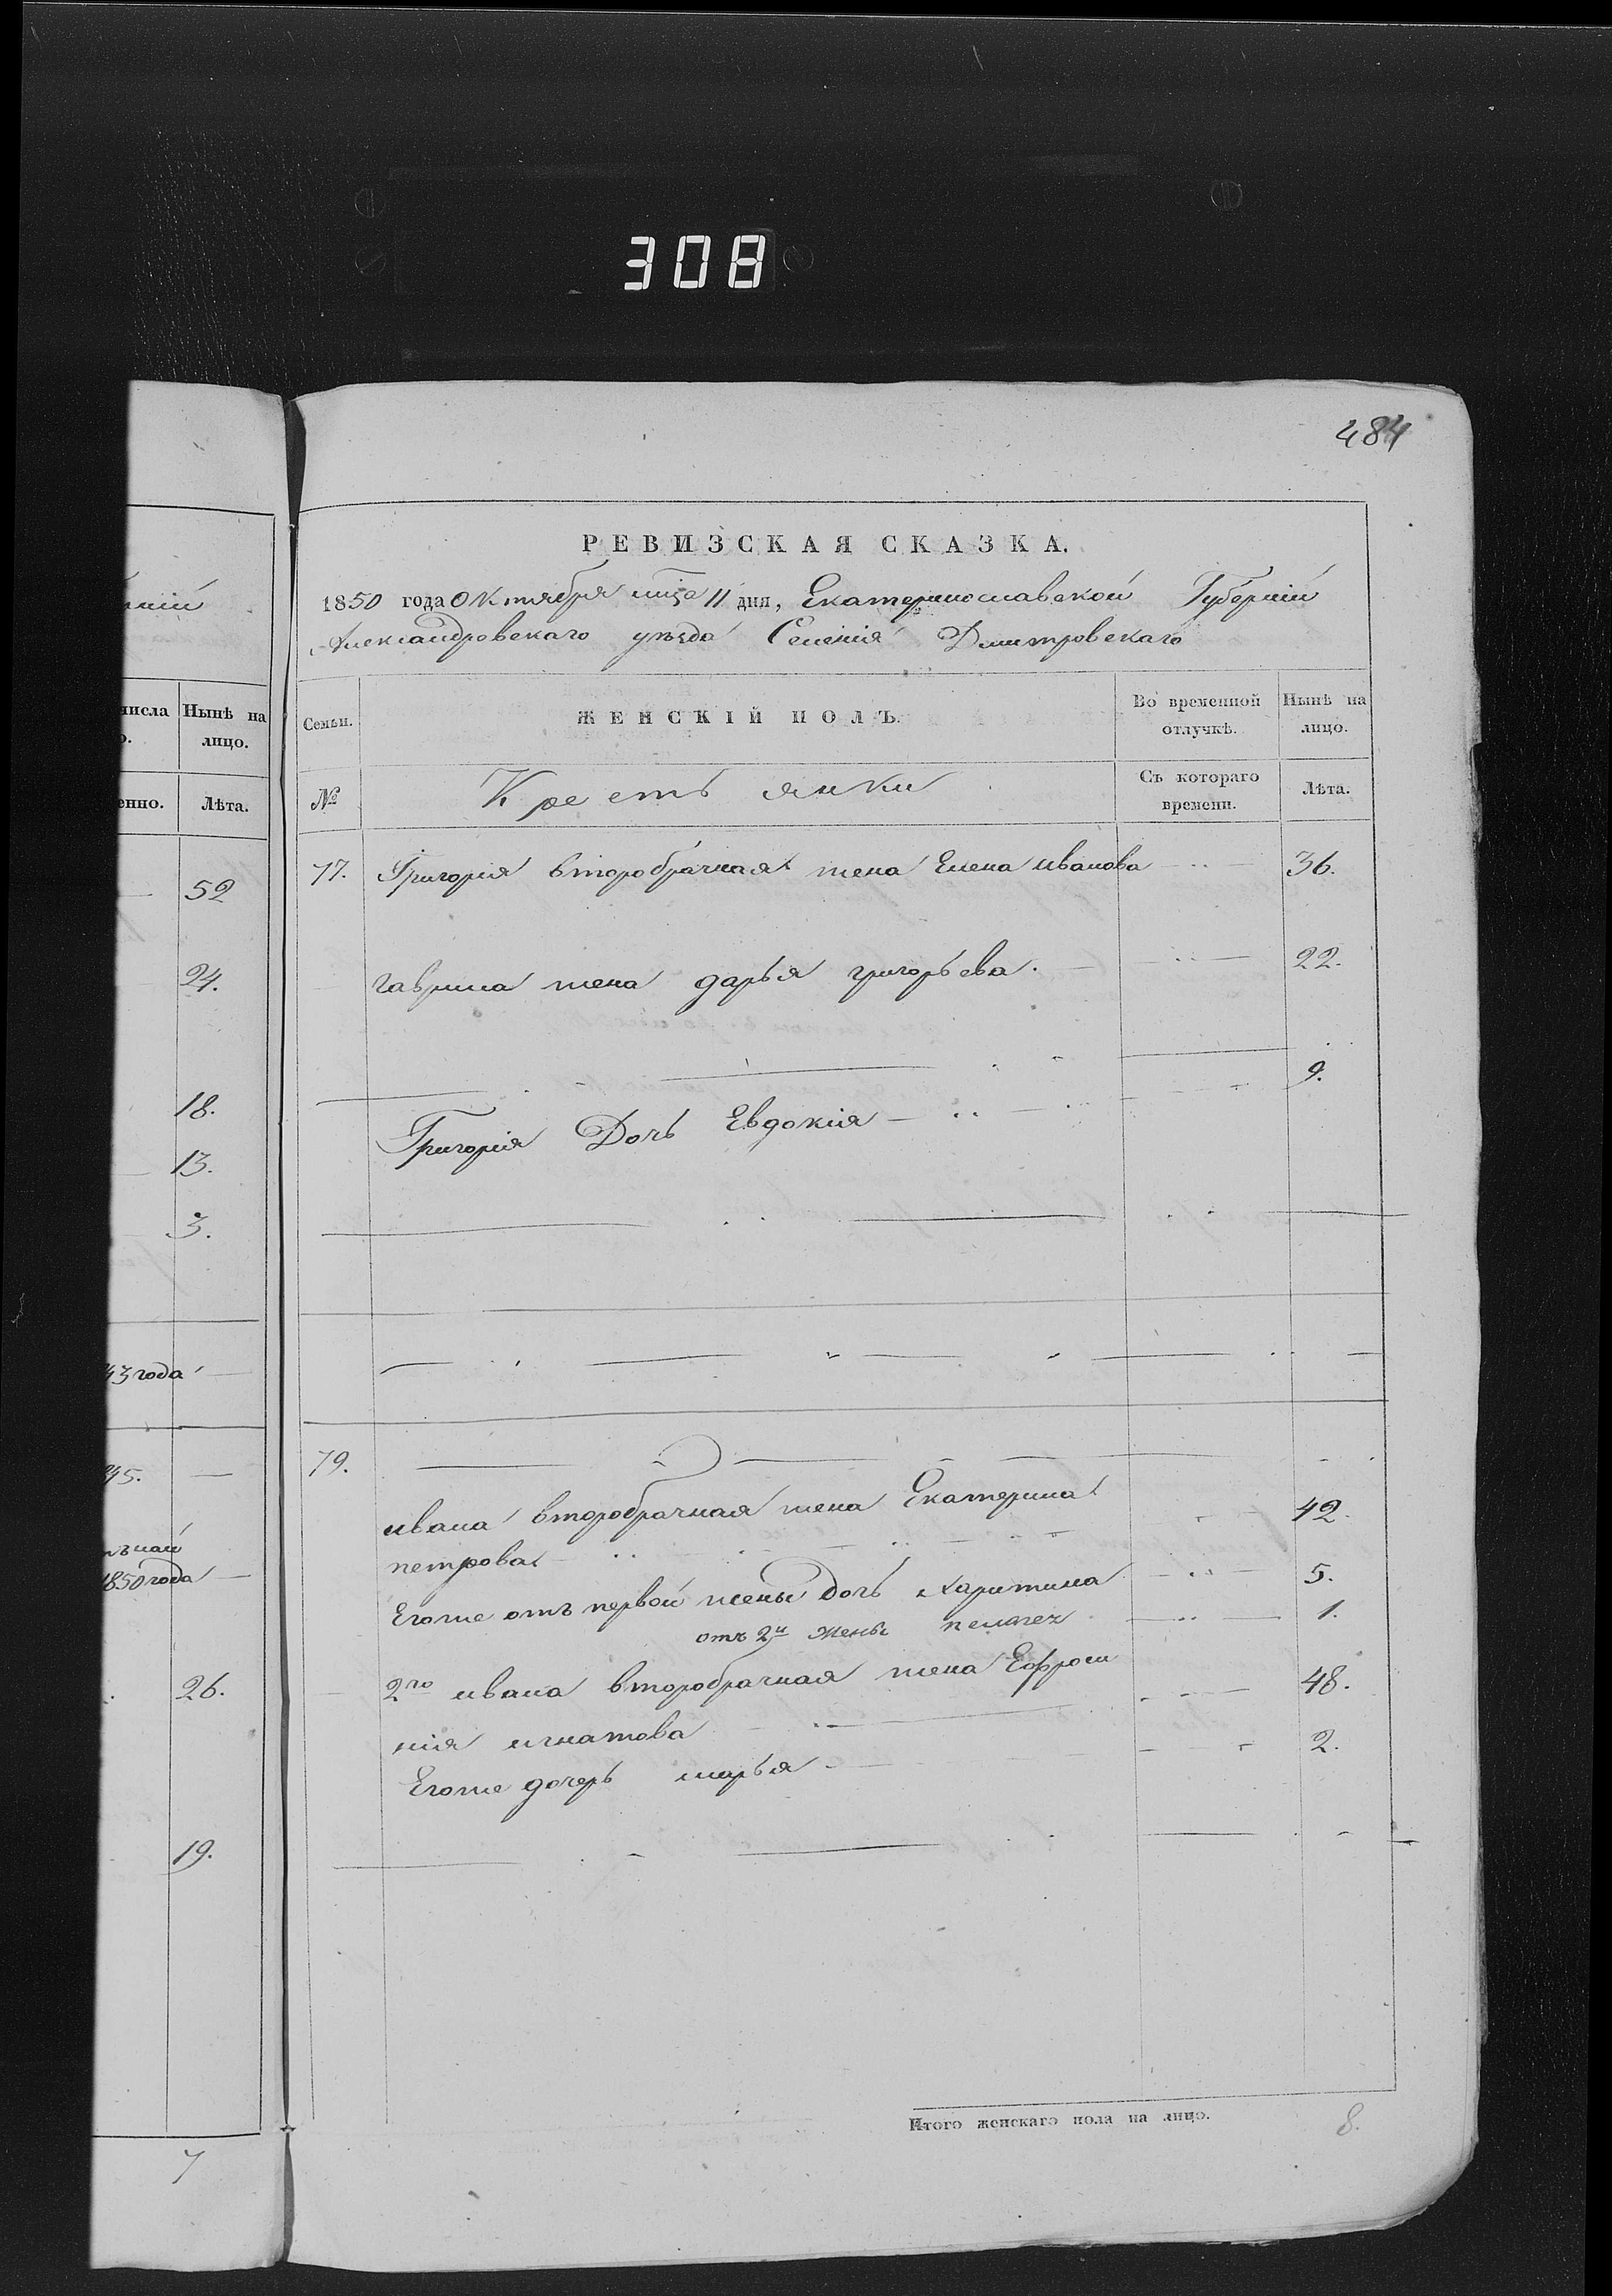 308
484
нiй
числа
Нынѣ на
лицо.
енно.
Лѣта.
52
24.
18.
13.
3.
43 года
45.
1850 года
26.
19.
7
РЕВИЗСКАЯ СКАЗКА.
1850 года Октября мца 11 дня, Екатеринославской Губернiй
Александровскаго уѣзда Селенiя Дмитровскаго
Семьи.
ЖЕНСКIЙ ПОЛЪ.
Во временной
отлучкѣ.
Нынѣ на
лицо.
№
Крестьянки
Съ котораго
времени.
Лѣта.
77. Григорiя второбрачная жена Елена иванова 36.
гаврила жена дарья григорьева. 22.
Григорiя Дочь Евдокiя 9.
79.
ивана второбрачная жена Екатерина
петрова 42.
Егоже отъ первой жены дочь Харитина 5.
отъ 2й жены пелагея 1.
2го ивана второбрачная жена Ефроси
нiя игнатова 48.
Егоже дочерь марья 2.
Итого женскаго пола на лицо. 8.